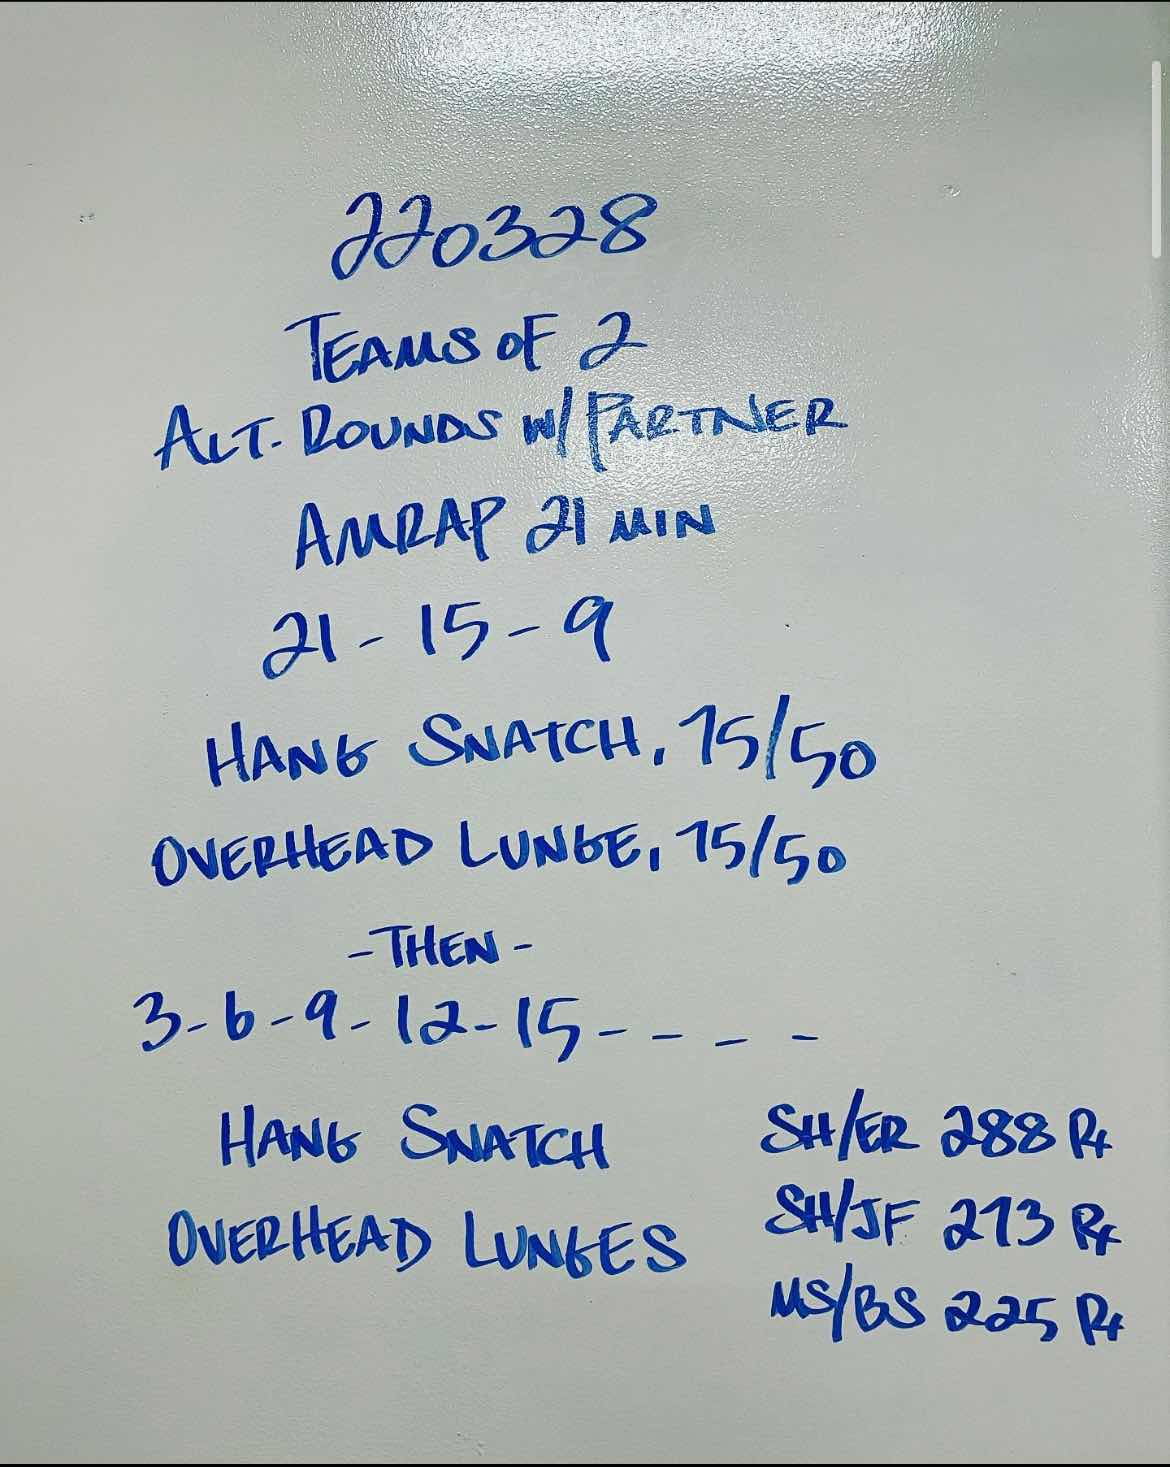 220328
TEAMS OF 2
ALT. ROUNDS W/ PARTNER
AMRAP 21 MIN
21-15-9
HANG SNATCH, 75/50
OVERHEAD LUNGE, 75/50
-THEN-
3-6-9-12-15- - - -
HANG SNATCH
OVERHEAD LUNGES
SH/ER 288 Rx
SH/JF 273 Rx
MS/BS 225 Rx